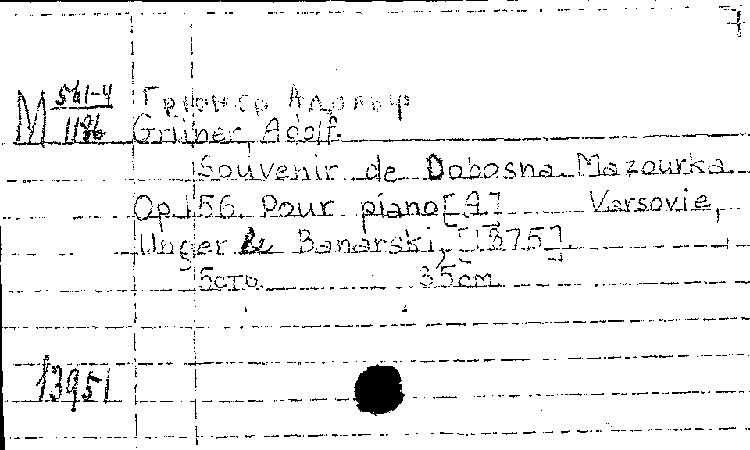 7
М 561-4
1186
Грюнер Адольф
Grüner, Adolf.
Souvenir de Dobosna. Mazourka.
Op. 56. Pour piano [A.] Varsovie,
Unger & Banarski, [1875].
5 стр. 35 cm.
13951